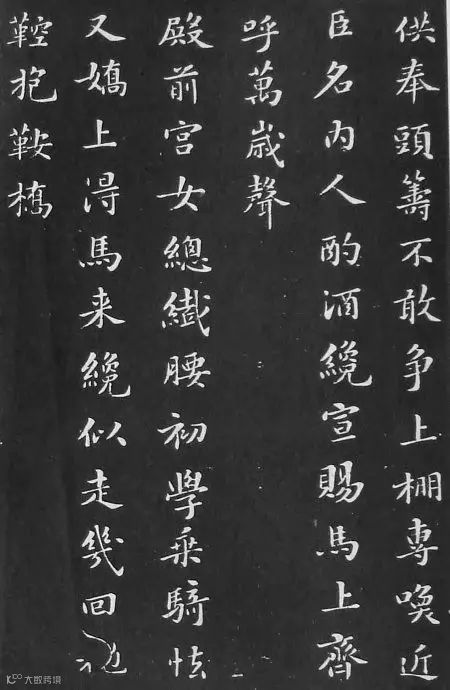 供奉頭籌不敢争上棚專喚近
臣名内人酌酒纔宣賜馬上齊
呼萬歳聲
殿前宫女總纖腰初學乗騎怯
又嬌上淂馬来纔似走幾回抛
鞚抱鞍橋
大数跨境